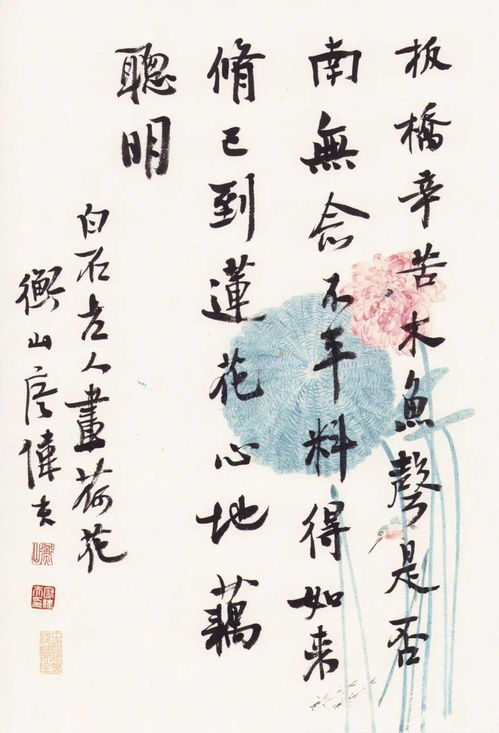 板橋幸苦木魚聲是否
南無念不平料得如来
脩已到蓮花心地藕
聰明
白石老人畫荷花
衡山偉夫